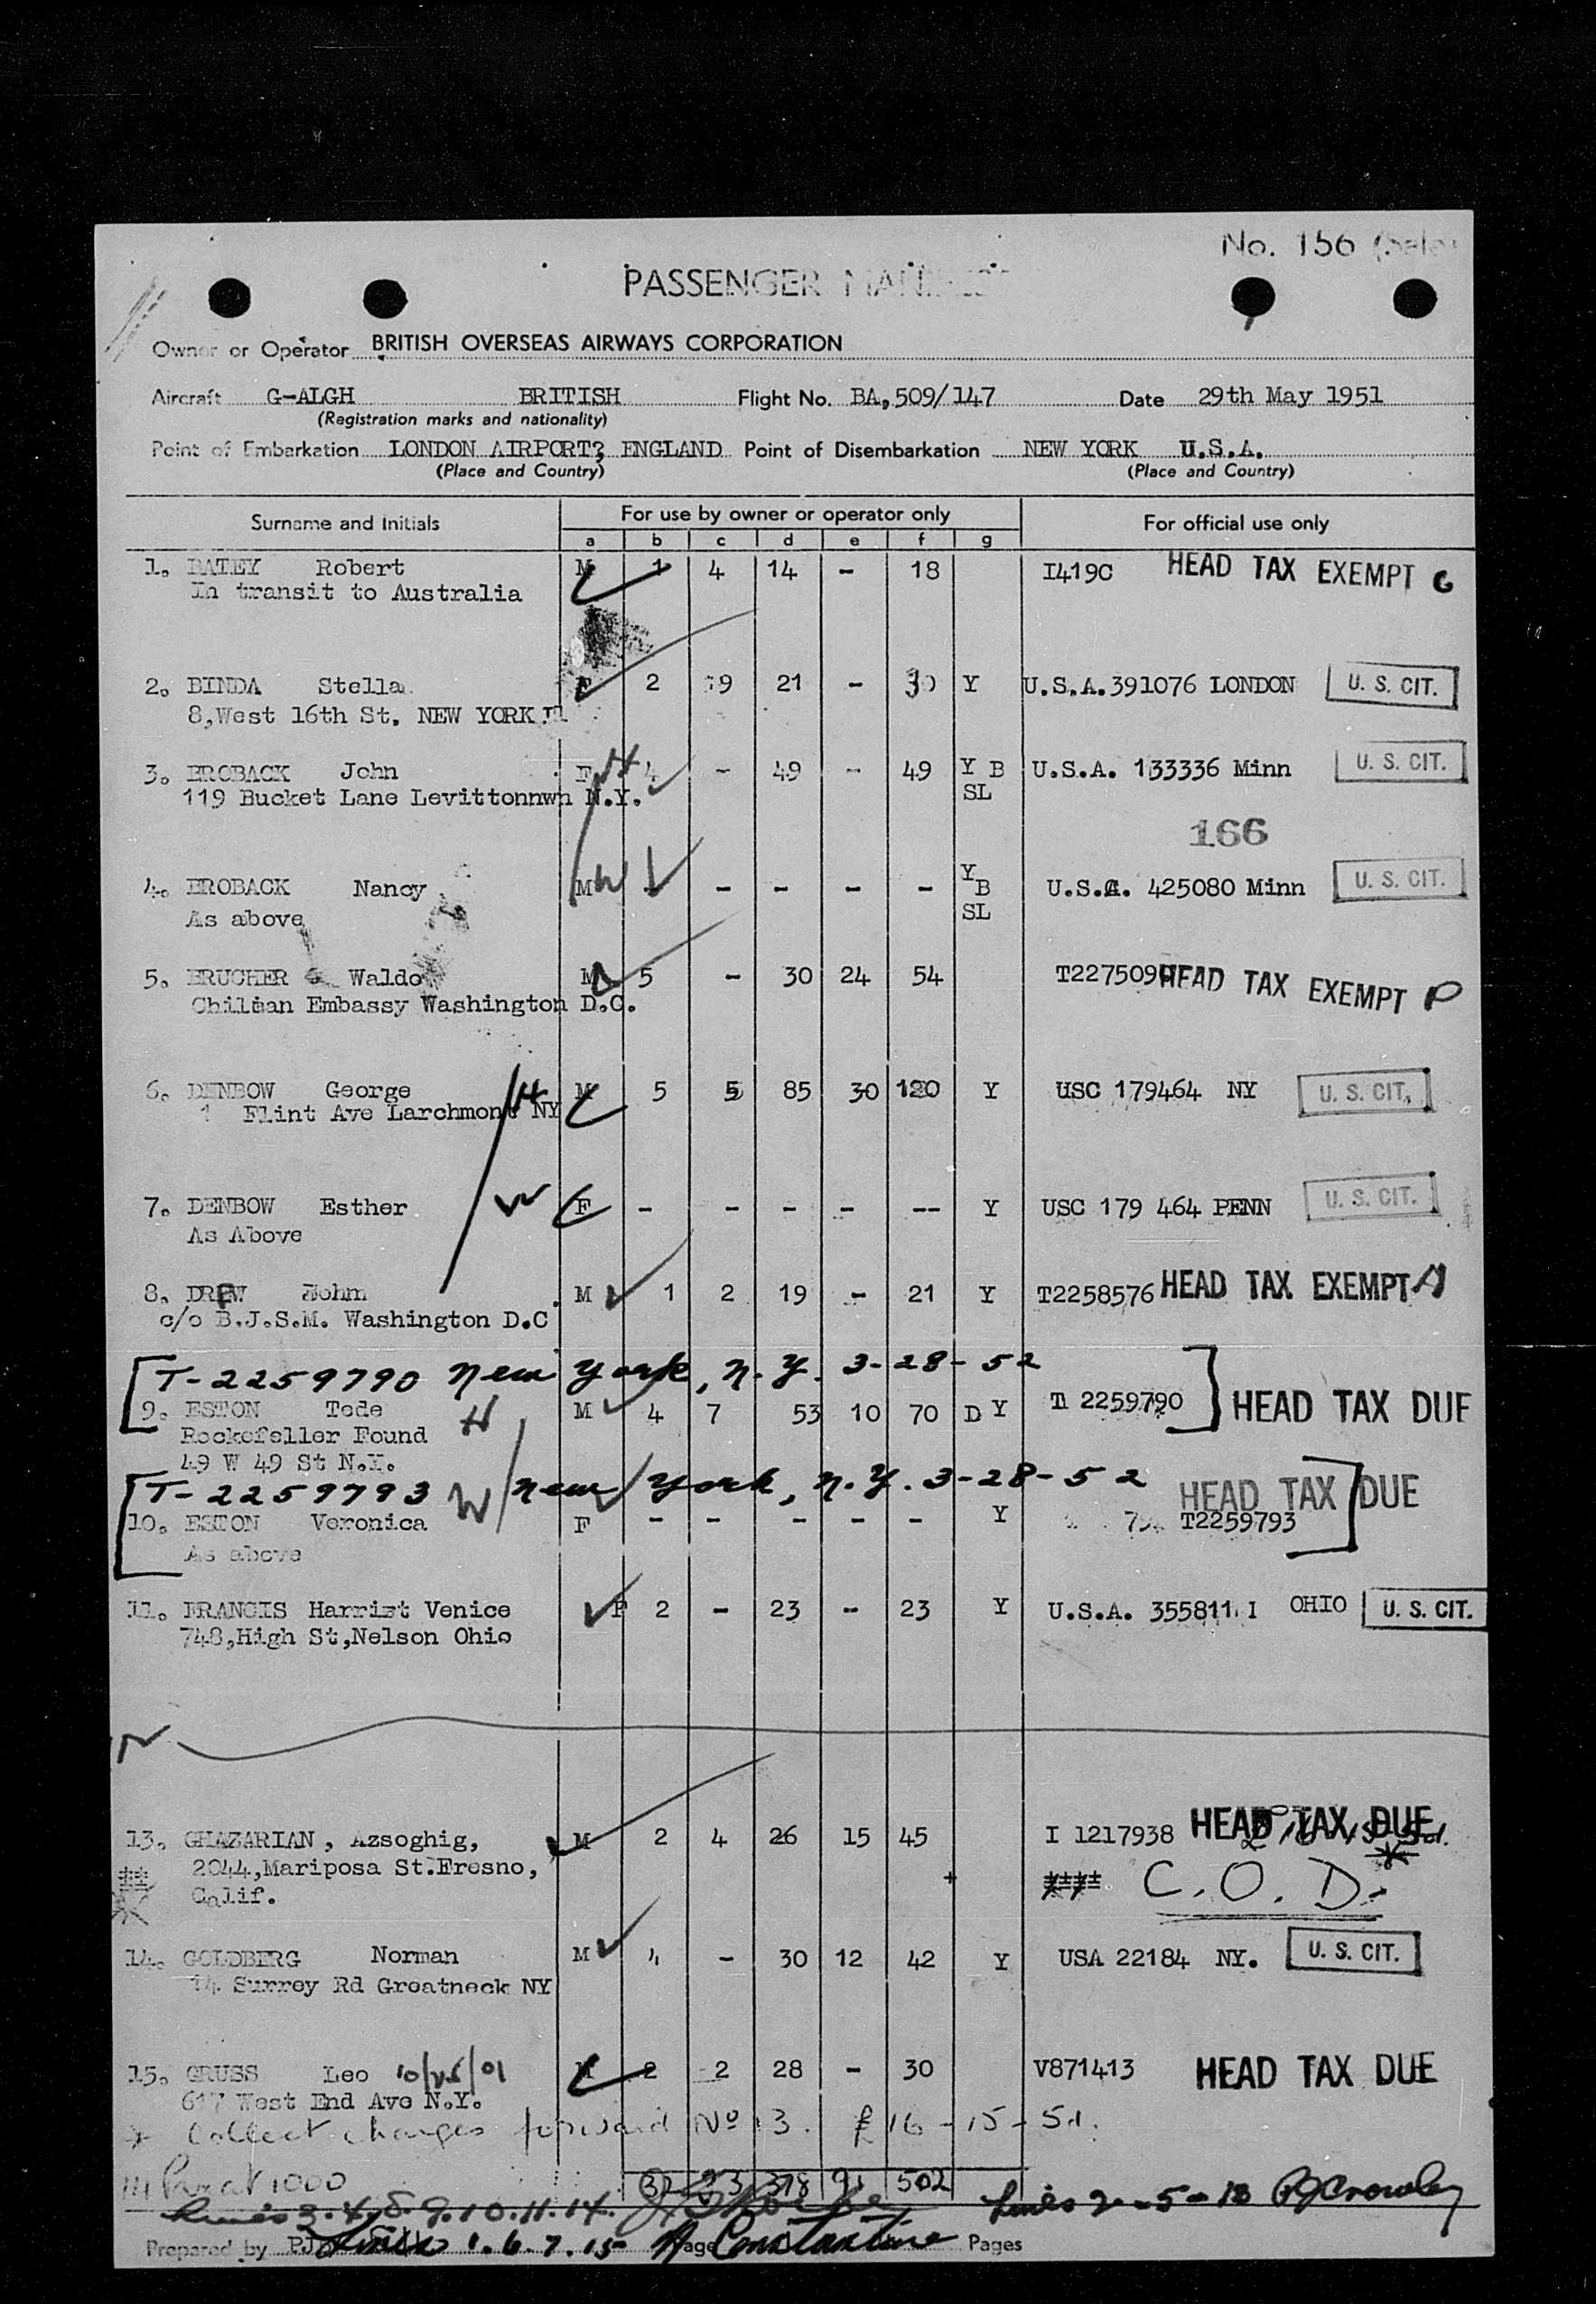 No. 156
PASSENGER MANIFEST
Owner or Operator BRITISH OVERSEAS AIRWAYS CORPORATION
Aircraft G-ALGH BRITISH Flight No. BA,509/147 Date 29th May 1951
(Registration marks and nationality)
Point of Embarkation LONDON AIRPORT? ENGLAND Point of Disembarkation NEW YORK U.S.A.
(Place and Country) (Place and Country)
Surname and Initials For use by owner or operator only For official use only
a b c d e f g
1. BATEY Robert M 1 4 14 - 18 I419C HEAD TAX EXEMPT G
In transit to Australia
2. BINDA Stella F 2 9 21 - 30 Y U.S.A.391076 LONDON U. S. CIT.
8,West 16th St. NEW YORK
3. BROBACK John F H 4 - 49 - 49 Y B U.S.A. 133336 Minn U. S. CIT.
119 Bucket Lane Levittonnwn N.Y. SL
166
4. BROBACK Nancy M W - - - - Y B U.S.A. 425080 Minn U. S. CIT.
As above SL
5. BRUCHER Waldo M 5 - 30 24 54 T227509 HEAD TAX EXEMPT P
Chilean Embassy Washington D.C.
6. DENBOW George H M 5 5 85 30 120 Y USC 179464 NY U. S. CIT.
1 Flint Ave Larchmont NY
7. DENBOW Esther W F - - - - -- Y USC 179 464 PENN U. S. CIT.
As Above
8. DREW John M 1 2 19 - 21 Y T2258576 HEAD TAX EXEMPT A
c/o B.J.S.M. Washington D.C.
T-2259790 New York, N.Y. 3-28-52
9. ESTON Tode H M 4 7 53 10 70 D Y T 2259790 HEAD TAX DUE
Rockefeller Found
49 W 49 St N.Y.
T-2259793 W New York, N.Y. 3-28-52 HEAD TAX DUE
10. ESTON Veronica F - - - - - Y T2259793
As above
11. FRANCIS Harrist Venice F 2 - 23 - 23 Y U.S.A. 355811 I OHIO U. S. CIT.
748,High St,Nelson Ohio
13. GHAZARIAN, Azsoghig, M 2 4 26 15 45 I 1217938 HEAD TAX DUE
2044,Mariposa St.Fresno, C.O.D.
Calif.
14. GOLDBERG Norman M 4 - 30 12 42 Y USA 22184 NY. U. S. CIT.
14 Surrey Rd Greatneck NY
15. GRUSS Leo 10/25/01 M 2 2 28 - 30 V871413 HEAD TAX DUE
617 West End Ave N.Y.
* Collect charges forward No 13. £16-15-5d.
14 Pax at 1000 502
Lines 3.4.8.9.10.11.14. Lines 2-5-13 Crowley
Prepared by Lines 1.6.7.15 Page Constantine Pages